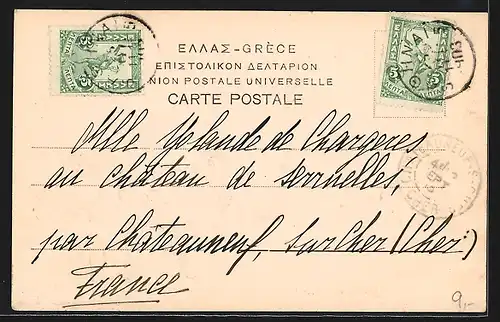 ΕΛΛΑΣ-GRÈCE
ΕΠΙΣΤΟΛΙΚΟΝ ΔΕΛΤΑΡΙΟΝ
NION POSTALE UNIVERSELLE
CARTE POSTALE
5 5
ΛΕΠΤΑ ΛΕΠΤΑ
5
Mlle Yolande de Chargères
au château de
par Châteauneuf, sur Cher (Cher)
France
9,-